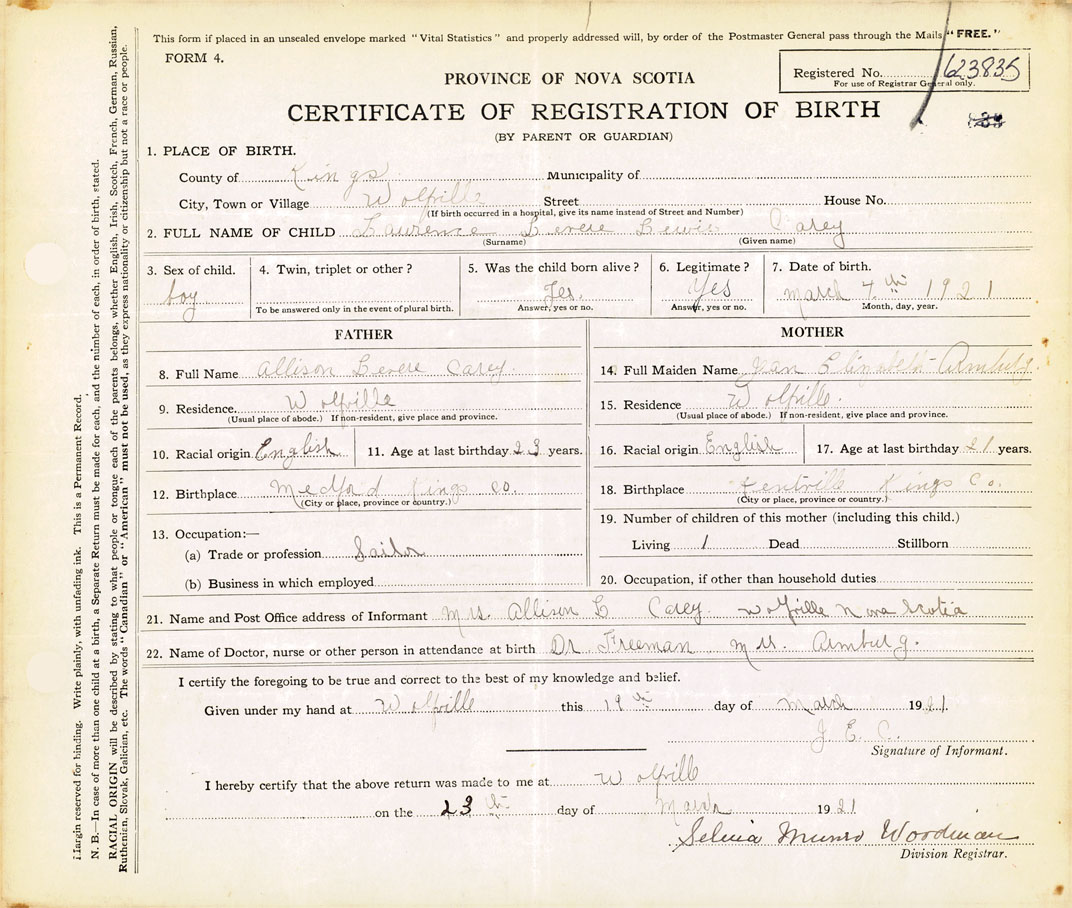 This form if placed in an unsealed envelope marked "Vital Statistics" and properly addressed will, by order of the Postmaster General pass through the Mails "FREE."
FORM 4.
Registered No. 623835
For use of Registrar General only.
PROVINCE OF NOVA SCOTIA
CERTIFICATE OF REGISTRATION OF BIRTH
(BY PARENT OR GUARDIAN)
1. PLACE OF BIRTH.
County of Kings Municipality of
City, Town or Village Wolfville Street House No.
(If birth occurred in a hospital, give its name instead of Street and Number)
2. FULL NAME OF CHILD Laurence Levere Lewis Carey
(Surname) (Given name)
3. Sex of child. 4. Twin, triplet or other? 5. Was the child born alive? 6. Legitimate? 7. Date of birth.
boy Yes. Yes March 7th 1921
To be answered only in the event of plural birth. Answer, yes or no. Answer, yes or no. Month, day, year.
FATHER
8. Full Name Allison Levere Carey.
9. Residence. Wolfville
(Usual place of abode.) If non-resident, give place and province.
10. Racial origin English 11. Age at last birthday 23 years.
12. Birthplace Medford Kings co.
(City or place, province or country.)
13. Occupation:—
(a) Trade or profession Sailor
(b) Business in which employed
MOTHER
14. Full Maiden Name Elizabeth Armburg
15. Residence Wolfville.
(Usual place of abode.) If non-resident, give place and province.
16. Racial origin English 17. Age at last birthday 21 years.
18. Birthplace Kentville Kings Co.
(City or place, province or country.)
19. Number of children of this mother (including this child.)
Living 1 Dead Stillborn
20. Occupation, if other than household duties
21. Name and Post Office address of Informant Mrs. Allison L Carey. Wolfville Nova Scotia
22. Name of Doctor, nurse or other person in attendance at birth Dr Freeman Mrs. Armburg.
I certify the foregoing to be true and correct to the best of my knowledge and belief.
Given under my hand at Wolfville this 19th day of March 1921.
J. E. C.
Signature of Informant.
I hereby certify that the above return was made to me at Wolfville
on the 23th day of March 1921
Selina Munro Woodman
Division Registrar.
Margin reserved for binding. Write plainly, with unfading ink. This is a Permanent Record.
N. B.—In case of more than one child at a birth, a Separate Return must be made for each, and the number of each, in order of birth, stated.
RACIAL ORIGIN will be described by stating to what people or tongue each of the parents belongs, whether English, Irish, Scotch, French, German, Russian,
Ruthenien, Slovak, Galician, etc. The words "Canadian" or "American" must not be used, as they express nationality or citizenship but not a race or people.